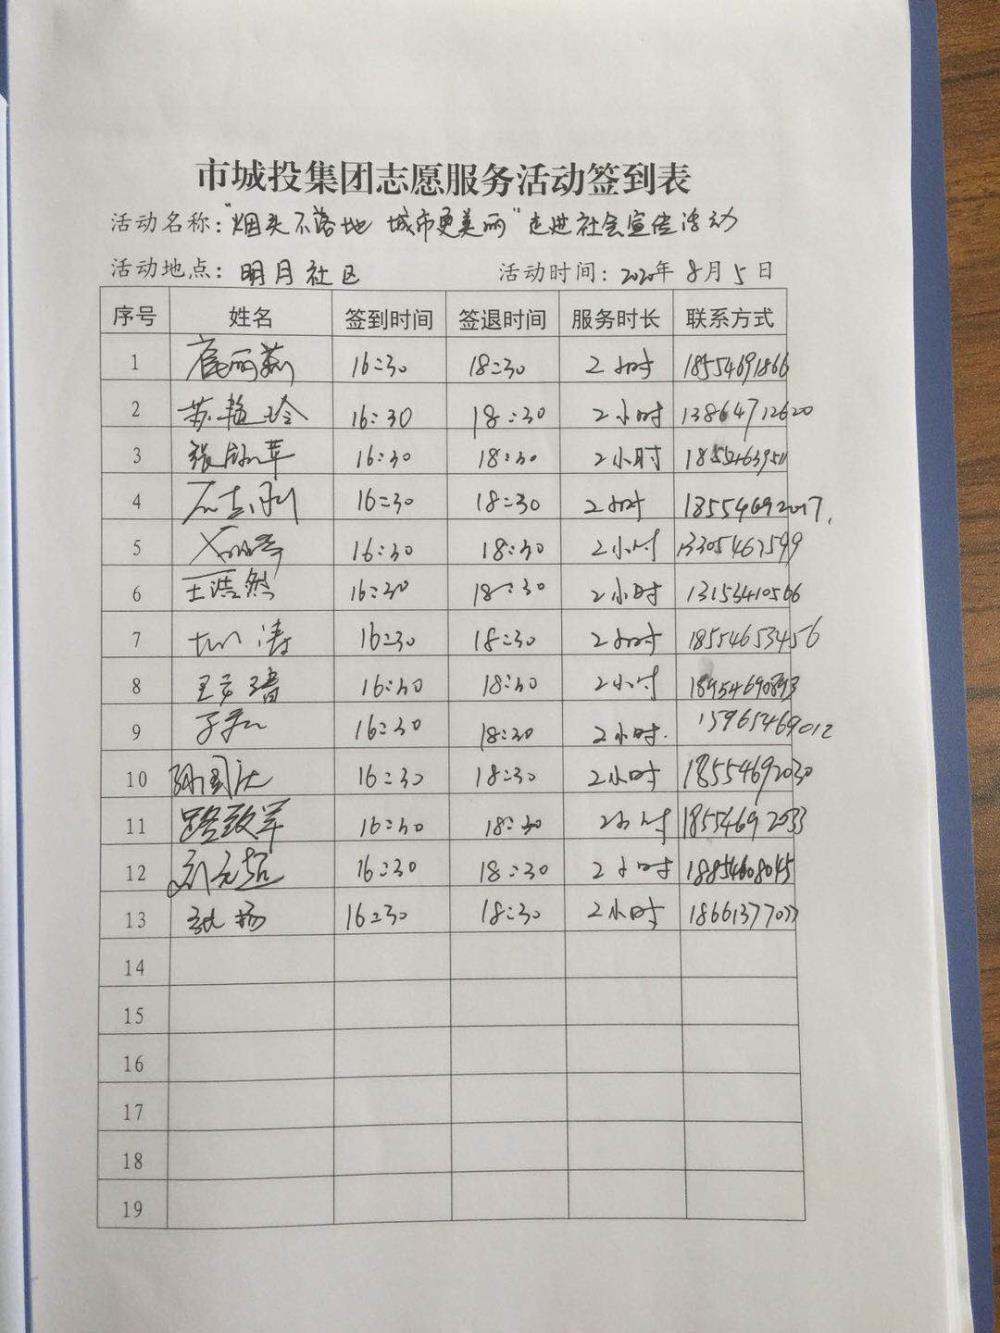 市城投集团志愿服务活动签到表
活动名称:"烟头不落地 城市更美丽"走进社会宣传活动
活动地点: 明月社区 活动时间: 2020年8月5日
序号 姓名 签到时间 签退时间 服务时长 联系方式
1 16:30 18:30 2小时 18554691866
2 苏艳玲 16:30 18:30 2小时 13864712620
3 16:30 18:30 2小时
4 16:30 18:30 2小时 18554692017.
5 16:30 18:30 2小时 13305467599
6 王浩然 16:30 18:30 2小时 13153410566
7 涛 16:30 18:30 2小时 18554653456
8 16:30 18:30 2小时 18954690893
9 16:30 18:30 2小时. 15965469012
10 16:30 18:30 2小时 18554692030
11 路致军 16:30 18:30 2小时 18554692033
12 刘元超 16:30 18:30 2小时 18854608045
13 张扬 16:30 18:30 2小时 18661377077
14
15
16
17
18
19